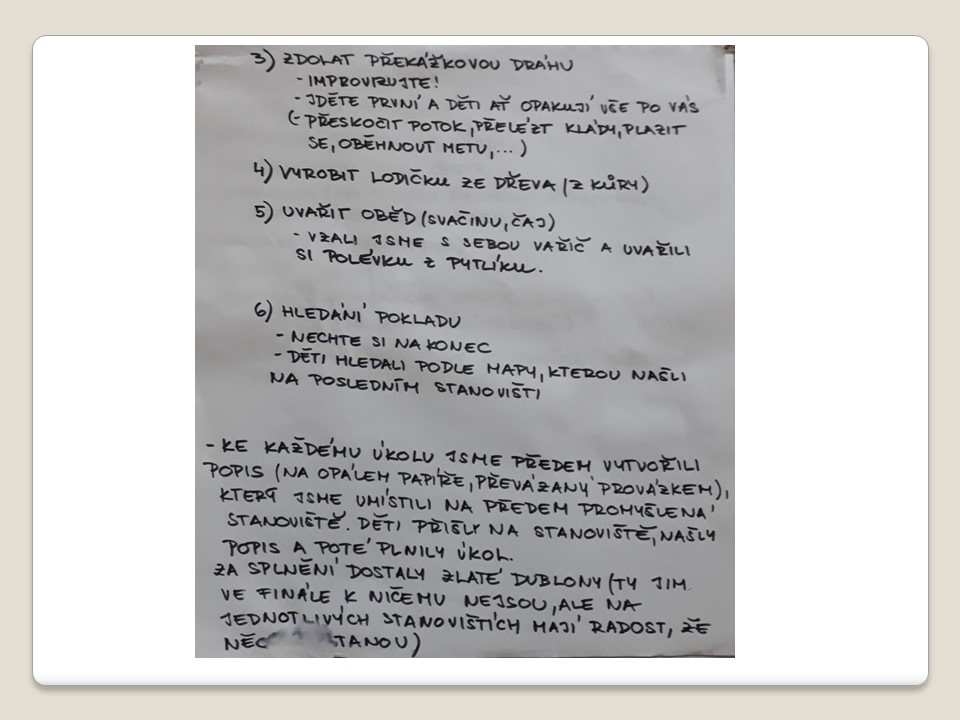 3) ZDOLAT PŘEKÁŽKOVOU DRÁHU
- IMPROVIZUJTE!
- JDĚTE PRVNÍ A DĚTI AŤ OPAKUJÍ VŠE PO VÁS
(- PŘESKOČIT POTOK, PŘELÉZT KLÁDY, PLAZIT
SE, OBĚHNOUT METU, ... )
4) VYROBIT LODIČKU ZE DŘEVA (Z KŮRY)
5) UVAŘIT OBĚD (SVAČINU, ČAJ)
- VZALI JSME S SEBOU VAŘIČ A UVAŘILI
SI POLÉVKU Z PYTLÍKU.
6) HLEDÁNÍ POKLADU
- NECHTE SI NA KONEC
- DĚTI HLEDALI PODLE MAPY, KTEROU NAŠLI
NA POSLEDNÍM STANOVIŠTI
- KE KAŽDÉMU ÚKOLU JSME PŘEDEM VYTVOŘILI
POPIS (NA OPÁLEM PAPÍŘE, PŘEVÁZANÝ PROVÁZKEM),
KTERÝ JSME UMÍSTILI NA PŘEDEM PROMYŠLENÁ
STANOVIŠTĚ. DĚTI PŘIŠLY NA STANOVIŠTĚ, NAŠLY
POPIS A POTÉ PLNILY ÚKOL.
ZA SPLNĚNÍ DOSTALY ZLATÉ DUBLONY (TY JIM
VE FINÁLE K NIČEMU NEJSOU, ALE NA
JEDNOTLIVÝCH STANOVIŠTÍCH MAJÍ RADOST, ŽE